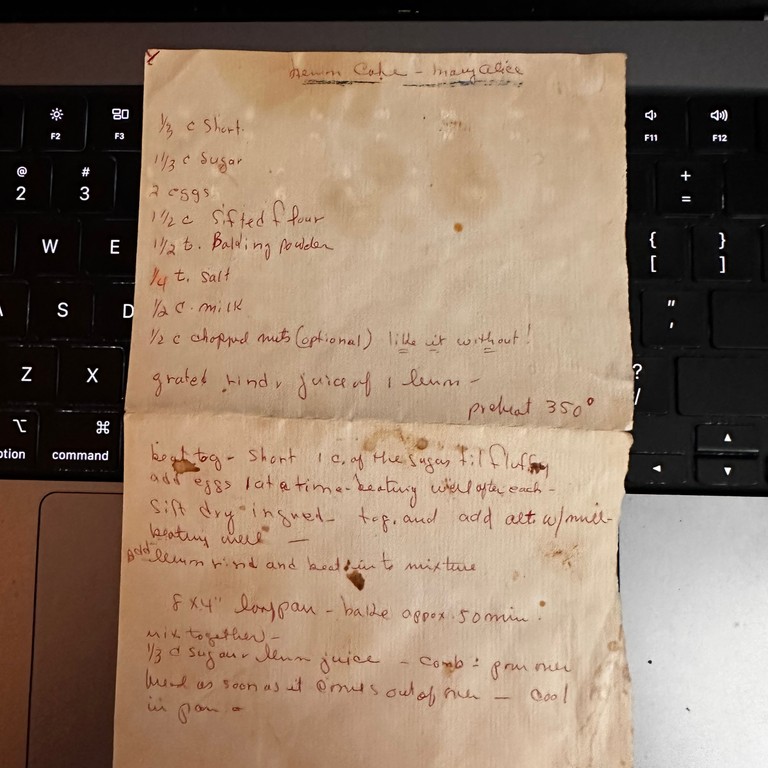 Lemon Cake - Mary Alice
1/3 c Short.
1 1/3 c Sugar
2 eggs
1 1/2 c Sifted flour
1 1/2 t. Baking powder
1/4 t. Salt
1/2 c. milk
1/2 c chopped nuts (optional) like it without!
grated rind & juice of 1 lemon -
preheat 350°
beat tog - Short 1 c. of the sugar til fluffy
add eggs 1 at a time - beating well after each -
Sift dry ingred - tog. and add alt. w/milk -
beating well -
Add lemon rind and beat into mixture
8 x 4" loaf pan - bake appox. 50 min.
mix together -
1/3 c sugar & lemon juice - comb. : pour over
bread as soon as it comes out of oven - cool
in pan
F2
F3
F11
F12
@
2
#
3
+
=
W
E
{
[
}
]
A
S
D
"
'
Z
X
?
/
⌥
⌘
option
command